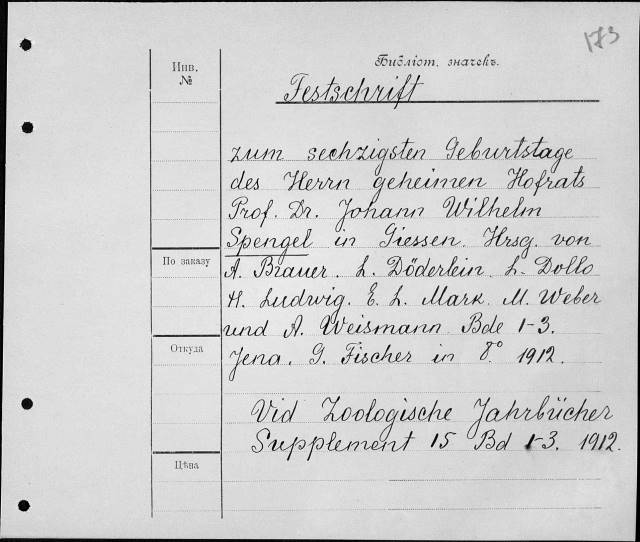 173
Инв.
№
Библіот. значекъ.
Festschrift
zum sechzigsten Geburtstage
des Herrn geheimen Hofrats
Prof. Dr. Johann Wilhelm
Spengel in Giessen. Hrsg. von
По заказу
A. Brauer. L. Döderlein. L. Dollo
H. Ludwig. E. L. Mark. M. Weber
und A. Weismann. Bde 1-3.
Откуда
Jena. G. Fischer in 8° 1912.
Vid Zoologische Jahrbücher
Supplement 15 Bd 1-3. 1912.
Цѣна